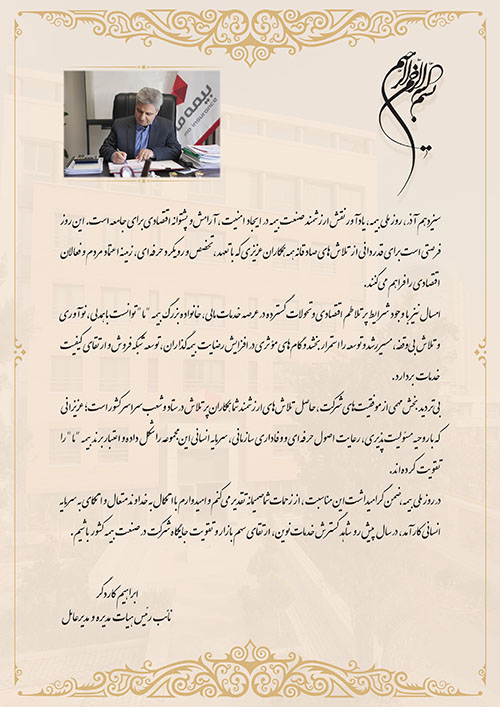 بسم الله الرحمن الرحیم
بیمه ما
سیزدهم آذر، روز ملی بیمه، یادآور نقش ارزشمند صنعت بیمه در ایجاد امنیت، آرامش و پشتوانه اقتصادی برای جامعه است. این روز
فرصتی است برای قدردانی از تلاش‌های صادقانه همه همکاران عزیزی که با تعهد، تخصص و رویکرد حرفه‌ای، زمینه اعتماد مردم و فعالان
اقتصادی را فراهم می‌کنند.
امسال نیز با وجود شرایط پرتلاطم اقتصادی و تحولات گسترده در عرصه خدمات مالی، خانواده بزرگ بیمه "ما" توانست با همدلی، نوآوری
و تلاش بی‌وقفه، مسیر رشد و توسعه را استمرار بخشد و گام‌های مؤثری در افزایش رضایت بیمه‌گذاران، توسعه شبکه فروش و ارتقای کیفیت
خدمات بردارد.
بی‌تردید بخش مهمی از موفقیت‌های شرکت، حاصل تلاش‌های ارزشمند شما همکاران پرتلاش در ستاد و شعب سراسر کشور است؛ عزیزانی
که با روحیه مسئولیت‌پذیری، رعایت اصول حرفه‌ای و وفاداری سازمانی، سرمایه انسانی این مجموعه را شکل داده و اعتبار برند بیمه "ما" را
تقویت کرده‌اند.
در روز ملی بیمه، ضمن گرامیداشت این مناسبت، از زحمات شما صمیمانه تقدیر می‌کنم و امیدوارم با اتکال به خداوند متعال و اتکای به سرمایه
انسانی کارآمد، در سال پیش رو شاهد گسترش خدمات نوین، ارتقای سهم بازار و تقویت جایگاه شرکت در صنعت بیمه کشور باشیم.
ابراهیم کاردگر
نائب رئیس هیات مدیره و مدیرعامل